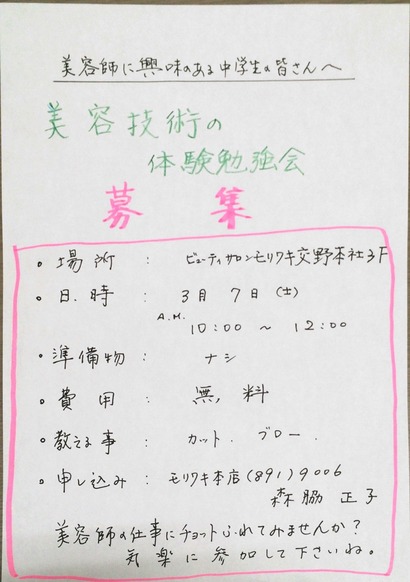 美容師に興味のある中学生の皆さんへ
美容技術の
体験勉強会
募集
・場所 : ビューティサロンモリワキ交野本社3F
・日時 : 3月7日(土)
A.M.
10:00 ~ 12:00
・準備物 : ナシ
・費用 : 無料
・教える事 : カット. ブロー.
・申し込み : モリワキ本店(891)9006
森脇 正子
美容師の仕事にチョットふれてみませんか?
気楽に参加して下さいね。